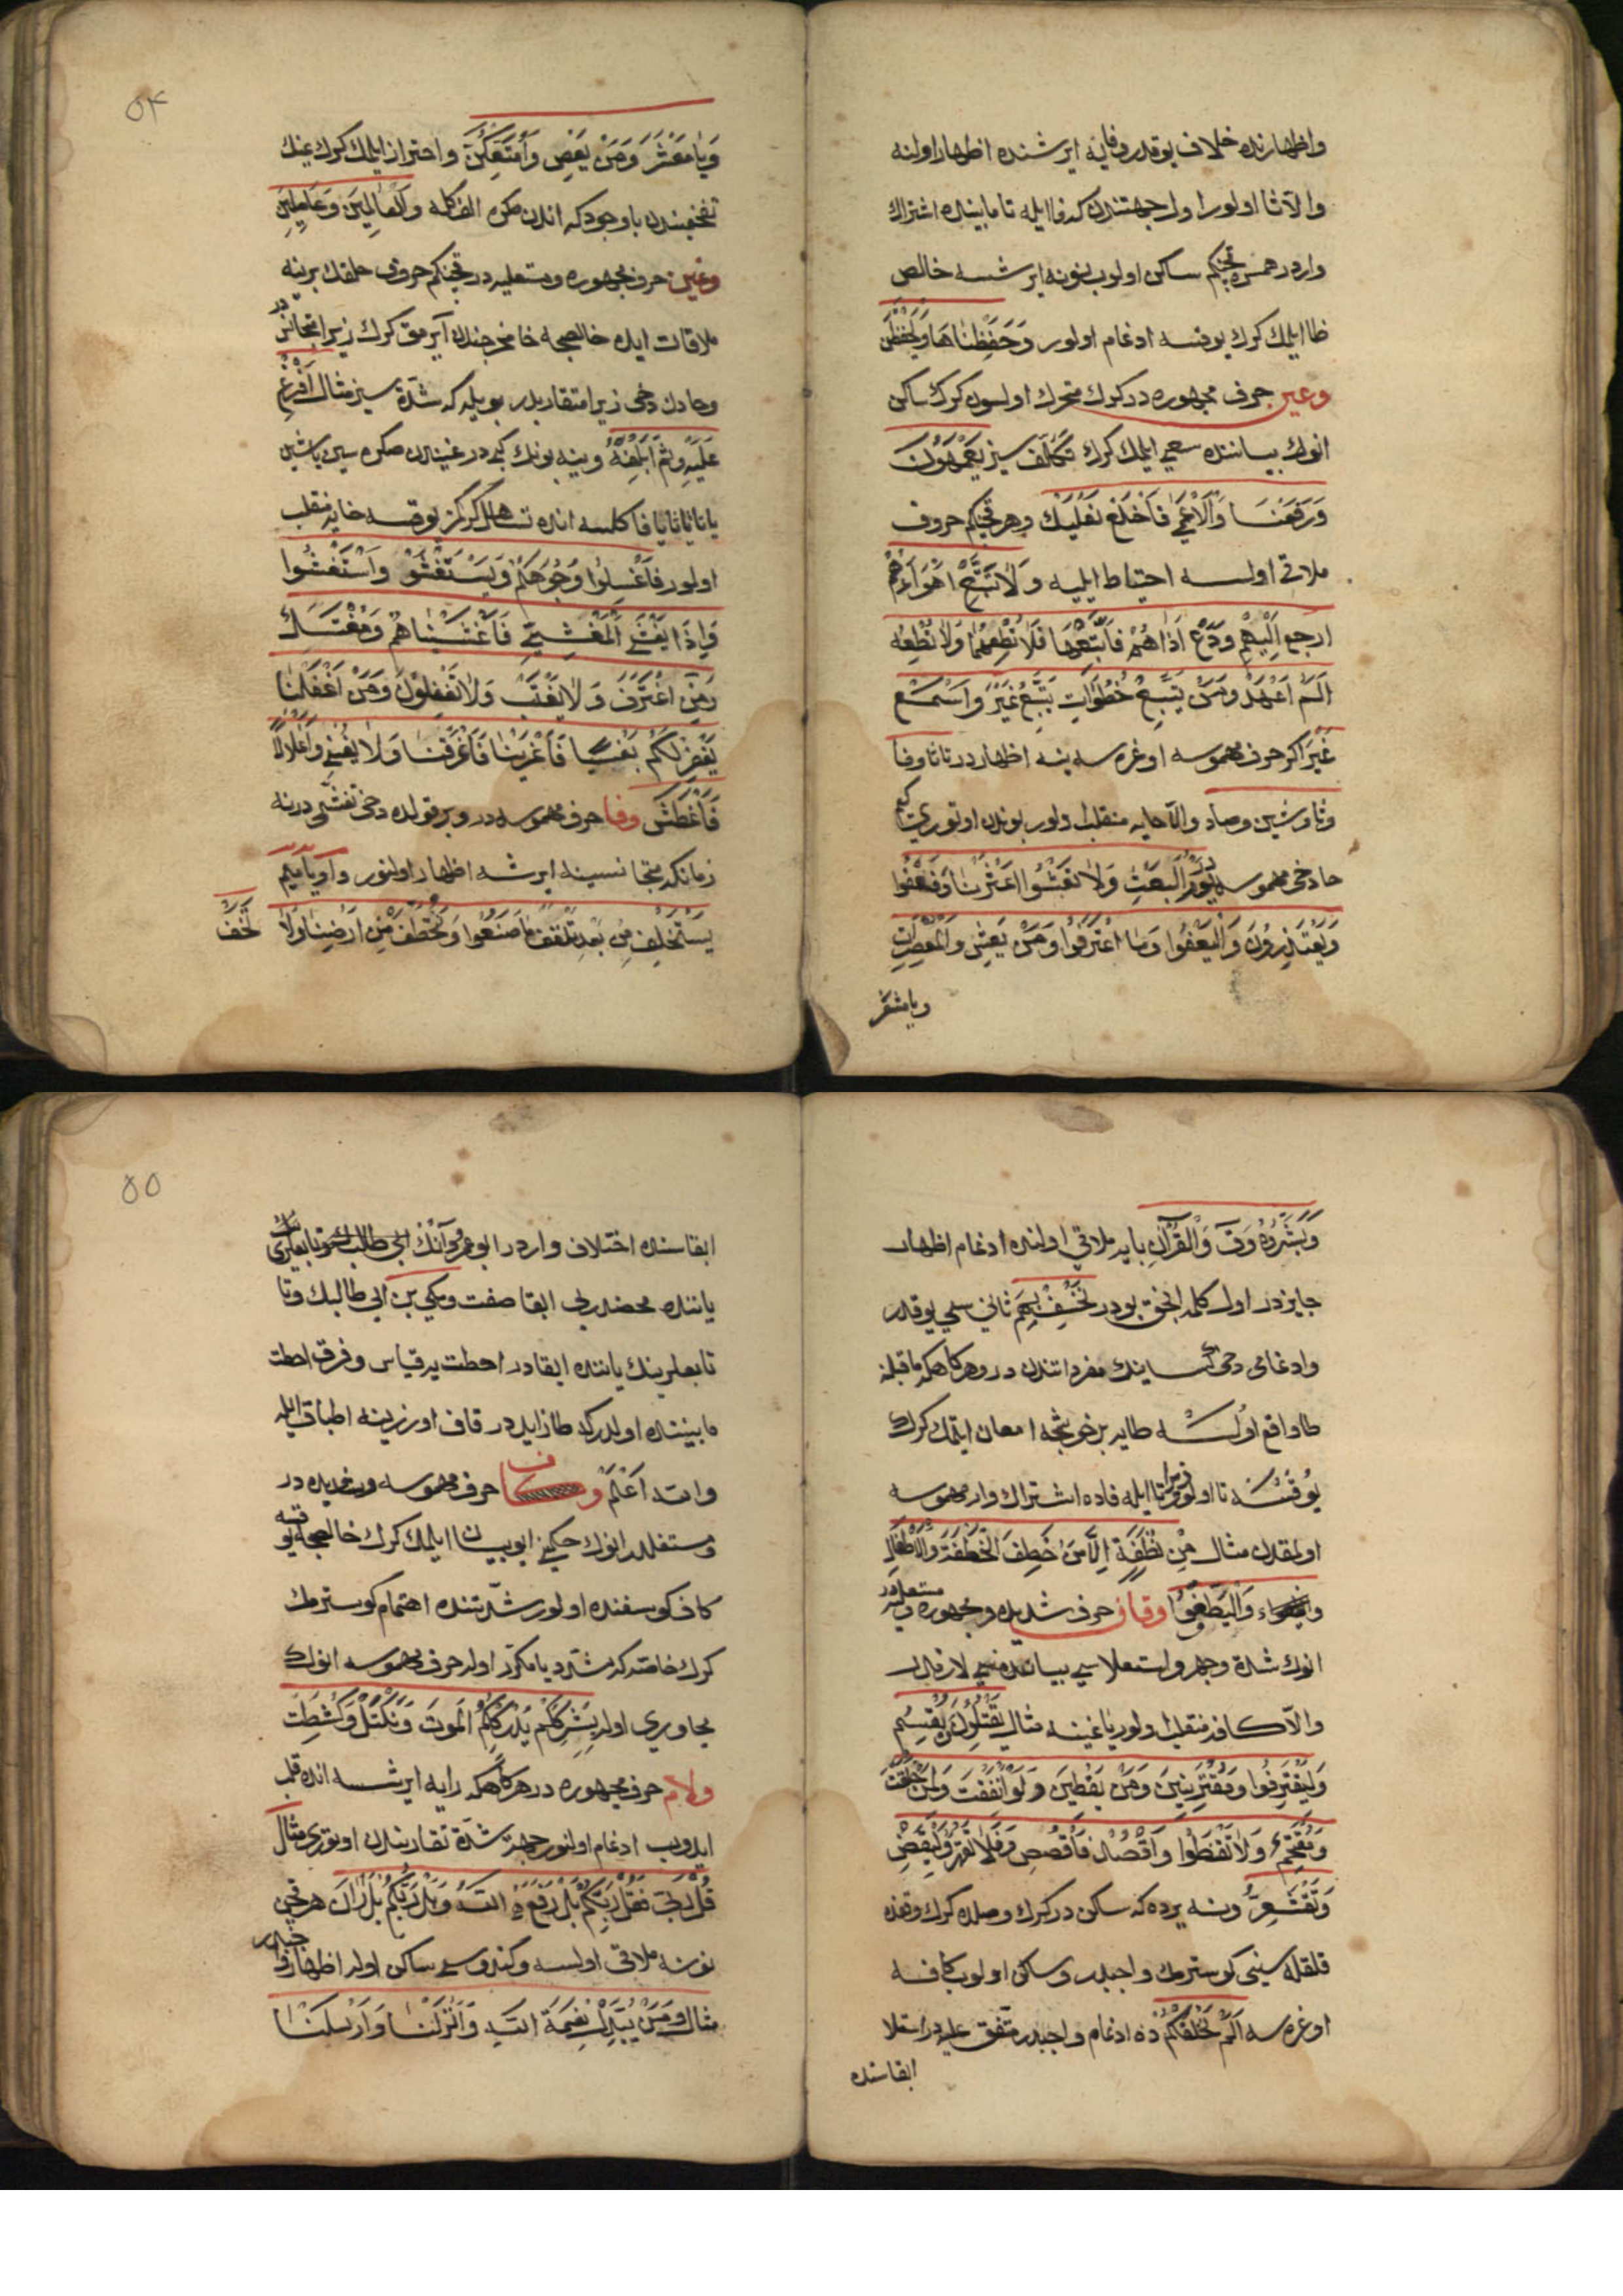 واظهارنده خلاف يوقدر وفايه ايرشنده اظهار اولنه
والا ثا اولور اول جهتندن كه فا ايله ثا مابيننده اشتراك
واردر همس قچنكم ساكن اولوب نونه ايرشسه خالص
ظا ايلمك كرك يوقسه ادغام اولور وَحَفِظْنَاهَا وَيَحْفَظْنَ
وعين حرف مجهوره در كرك متحرك اولسون كرك ساكن
انوك بياننده سعى ايلمك كرك تكلف سيز يَعْمَهُونَ
وَرَفَعْنَا وَالْاَعْمٰى فَاخْلَعْ نَعْلَيْكَ وهر قچنكم حروف
ملاقى اولسه احتياط ايليه وَلَا تَتَّبِعْ اَهْوَاءَهُمْ
ارجع اِلَيْهِمْ وَدَعْ اَذَاهُمْ فَاتَّبِعْهَا فَلَا تُطِعْهُمَا وَلَا تُطِعْهُ
اَلَمْ اَعْهَدْ وَمَنْ يَتَّبِعْ خُطُوَاتِ يَتَّبِعْ غَيْرَ وَاسْمَعْ
غَيْرَ اكر حرف مهموسه اوغره سه ينه اظهار در تا ثا وفا
وثا وشين وصاد والا حايه منقلب اولور بوندن اوتورى كه
حا دخى مهموسه در يَوْمِ الْبَعْثِ وَلَا تَعْثَوْا اَعْثَرْنَا وَلْيَعْفُوا
وَيَعْتَذِرُونَ وَلْيَعْفُوا وَمَا اعْتَرَفُوا وَمَنْ يَعْشُ وَالْمُعْصِرَاتِ
ويا معشر
٥٤
وَيَا مَعْشَرَ وَمَنْ يَعْصِ وَاُمَتِّعْكُنَّ واحتراز ايلمك كرك عينك
تفخيمندن باوجودكه اندن صكره الف كله وَالْعَالَمِينَ وَعَامِلِينَ
وغين حرف مجهوره ومستعليه در قچنكم حروف حلقك برينه
ملاقات ايده خالصجه خا مخرجندن آيرمق كرك زيرا متجانس در
وحادن دخى زيرا متقاربلر بويله كه شدة سيز مثال اَفْرِغْ
عَلَيْهِ وثُمَّ اَبْلِغْهُ وينه بونك كبى در غيندن صكره سين يا شين
يا تا يا ثا يا فا كلسه انده تساهل كركمز يوقسه خايه منقلب
اولور فَاغْسِلُوا وُجُوهَكُمْ وَيَسْتَغْشُونَ وَاسْتَغْشَوْا
وَاِذَا يَغْشَى الْمَغْشِيِّ فَاَغْشَيْنَاهُمْ وَمُغْتَسَلٌ
وَمَنِ اغْتَرَفَ وَلَا يَغْتَبْ وَلَا تَغْفُلُونَ وَمَنْ اَغْفَلْنَا
يَغْفِرْ لَكُمْ بَغْيًا فَاَغْرَيْنَا فَاَغْرَقْنَا وَلَا يُغْنِى وَاَغْلَالًا
فَاَغْطَشَ وفا حرف مهموسه در وبر قولده دخى تفشّى در نه
زمانكه متجانسينه ايرشه اظهار اولنور واو يا ميم
يَسْتَخْلِفْ مِنْ بَعْدِ تَلْقَفْ مَا صَنَعُوا وَنُتَخَطَّفْ مِنْ اَرْضِنَا وَلَا تَخَفْ
وَبَشِّرُوهُ وَقٓ وَالْقُرْاٰنِ بايه ملاقى اولنده ادغام اظهار
جايز در اول كلمه انجق بودر نَخْسِفْ بِهِمُ ثانيسى يوقدر
وادغامى دخى كساينك مفرداتندن در وهر كاهكه ما قبلنه
طا واقع اولسه طايه بر خوشجه امعان ايتمك كرك
يوقسه تا اولور زيرا تا ايله فاده اشتراك وار مهموسه
اولمقدن مثال مِنْ نُطْفَةٍ اِلَّا مَنْ خَطِفَ الْخَطْفَةَ وَالْاَطْفَالِ
وَلْيَطَّوَّفُوا وقاف حرف شديده ومجهوره ومستعليه در
انوك شدة وجهر واستعلاسى بياننده سعى لازمدر
والا كافه منقلب اولور يا غينه مثال يَقْتُلُونَ يُقْسِمُ
وَلِيَقْتَرِفُوا وَمُقْتَرِنِينَ وَمَنْ يَقْطِينٍ وَلَوْ اَنْفَقْتَ وَلِمَنْ خَلَقْتَ
وَتَقْتَحِمُ وَلَا تَقْنَطُوا وَاقْصِدْ فَاقْصُصِ فَلَا تَقْهَرْ وَلْيَقْضِ
وَتَقْشَعِرُّ ونه يرده كه ساكن در كرك وصلده كرك وقفده
قلقله سينى كوسترمك واجبدر وساكن اولوب كافه
اوغره سه اَلَمْ نَخْلُقْكُمْ ده ادغام واجبدر متفق عليه در استعلا
ابقاسنده
٥٥
ابقاسنده اختلاف واردر ابو عمرو انك مكى بن ابى طالب وتابعلرى
ياننده محضدر بى ابقا صفت ومكى بن ابى طالبك وتا
تابعلرينك ياننده ابقادر احطت يه قياس وفرق احطت
مابيننده اولدركه طا زايلدر قاف اوزرينه اطباق ايله
والله اَعْلَمُ وكاف حرف مهموسه وشديده در
ومستفله در انوك حكمنى ايو بيان ايلمك كرك خالصجه يوقسه
كاف كوسفنده اولور شدتنده اهتمام كوسترمك
كرك خاصه كه مشدد يا مكرر اوله حرف مهموسه انوك
مجاورى اوله بِشِرْكِكُمْ يُدْرِكْكُمُ الْمَوْتُ وَنَكْتَلْ وَكُشِطَتْ
ولام حرف مجهوره در هر كاهكه رايه ايرشسه انده قلب
ايدوب ادغام اولنور جهر شدة تقاربندن اوتورى مثال
قُلْ رَبِّ فَقُلْ رَبُّكُمْ بَلْ رَفَعَهُ اللّٰهُ وَبَلْ رَبُّكُمْ بَلْ رَانَ هر قچن
نونه ملاقى اولسه وكندوسى ساكن اوله اظهار واجبدر
مثال وَمَنْ يُبَدِّلْ نِعْمَةَ اللّٰهِ وَاَنْزَلْنَا وَاَرْسَلْنَا